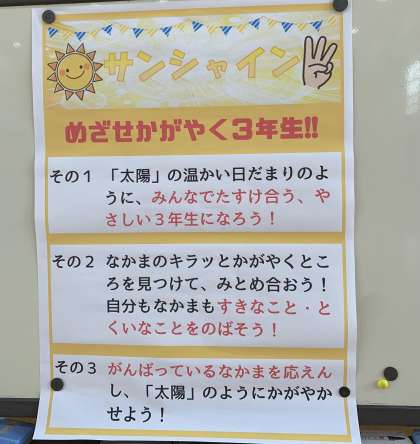 サンシャイン
めざせかがやく３年生!!
その１ 「太陽」の温かい日だまりのよ
うに、みんなでたすけ合う、や
さしい３年生になろう！
その２ なかまのキラッとかがやくとこ
ろを見つけて、みとめ合おう！
自分もなかまもすきなこと・と
くいなことをのばそう！
その３ がんばっているなかまを応えん
し、「太陽」のようにかがやか
せよう！